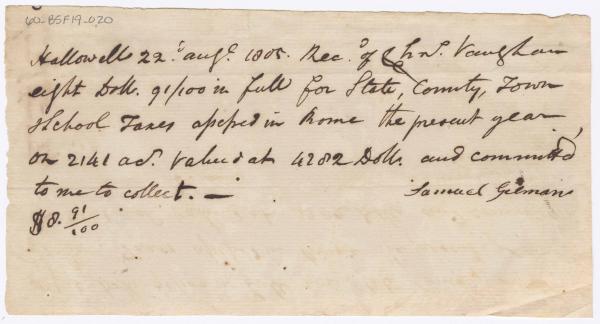 60-BSF19-020
Hallowell 22d. augt. 1805. Recd. of Chs. Vaughan
eight Dolls. 91/100 in full for State, County, Town
& School Taxes assessed in Rome the present year
on 2141 acs. valued at 4282 Dolls. and committed
to me to collect. —
Samuel Gilman
$8. 91/100